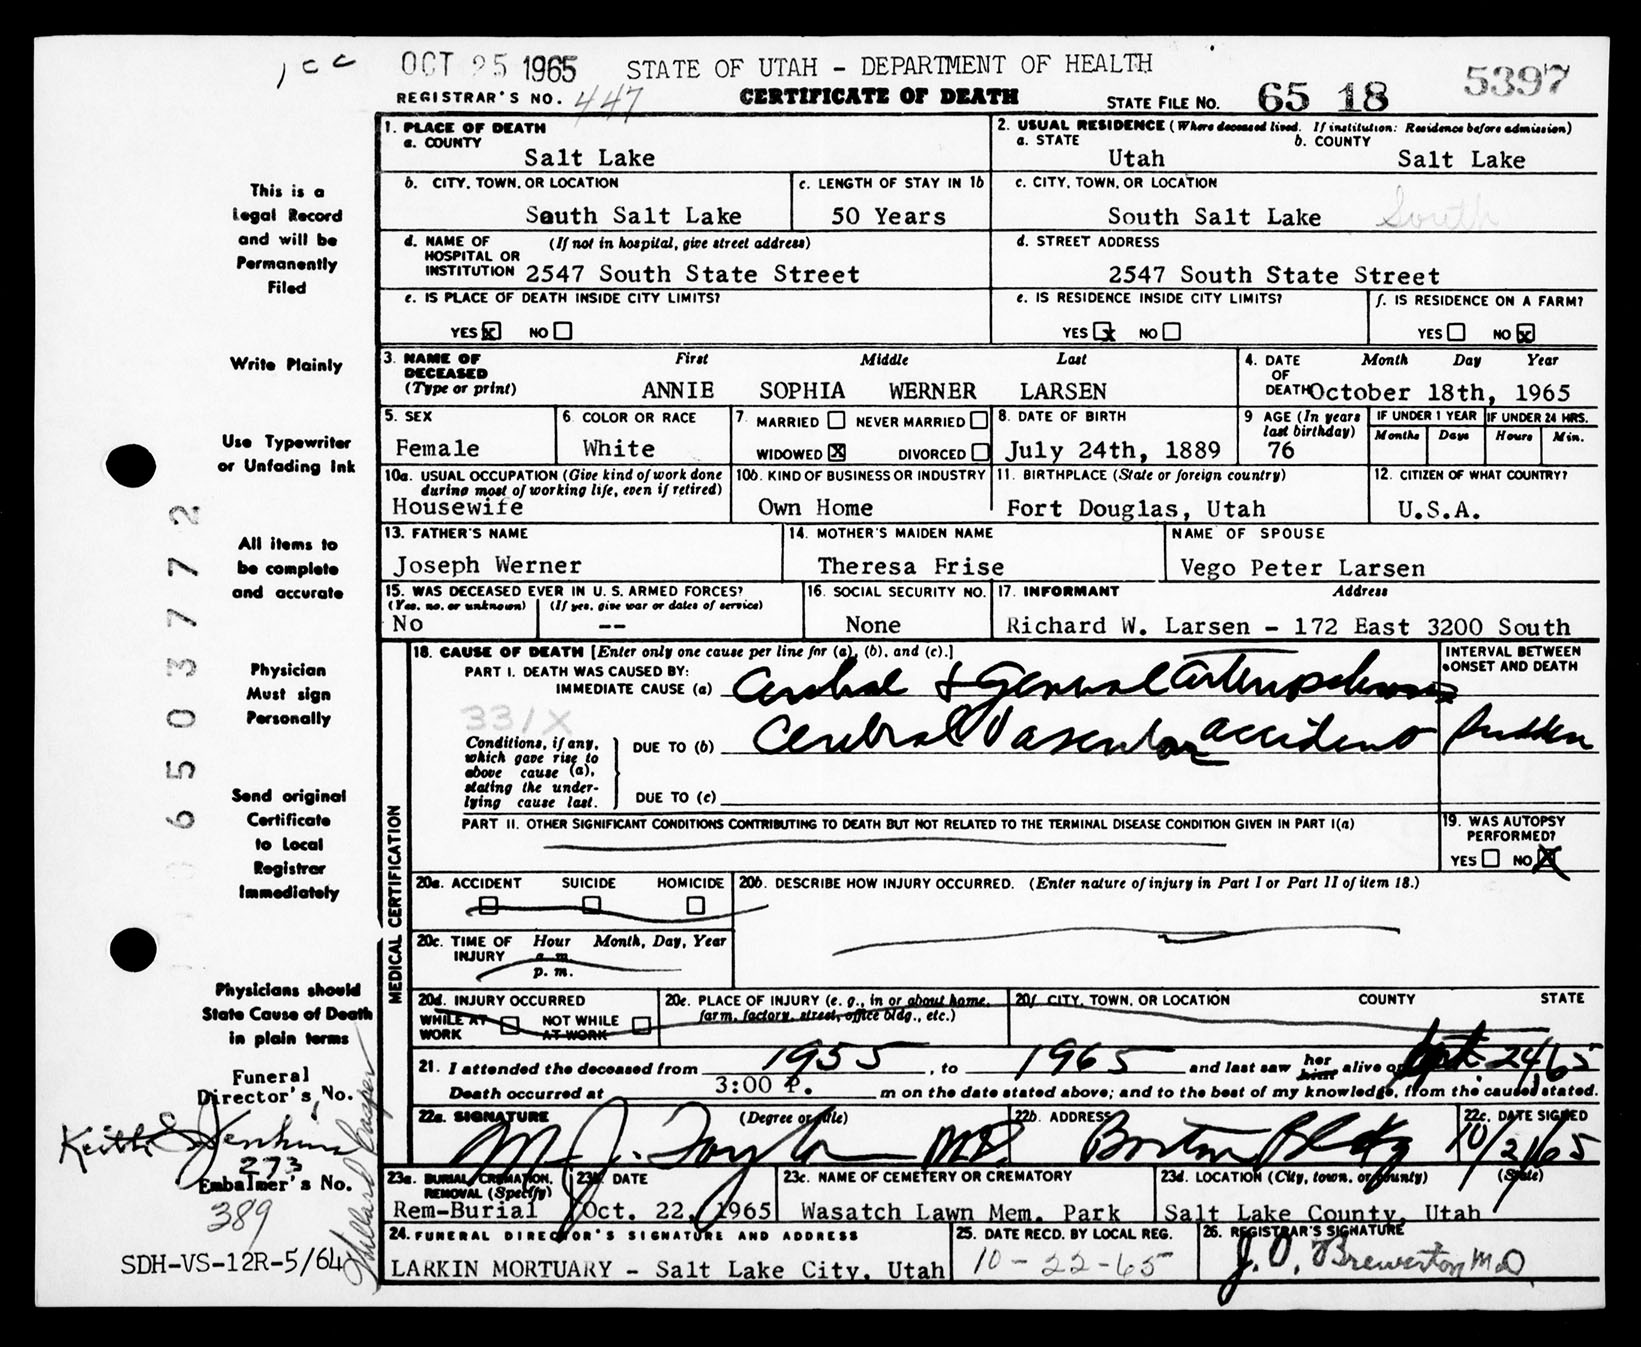 1 c c OCT 25 1965 STATE OF UTAH - DEPARTMENT OF HEALTH 5397
REGISTRAR'S NO. 447 CERTIFICATE OF DEATH STATE FILE NO. 65 18
1. PLACE OF DEATH
a. COUNTY
Salt Lake
2. USUAL RESIDENCE (Where deceased lived. If institution: Residence before admission)
a. STATE b. COUNTY
Utah Salt Lake
b. CITY, TOWN, OR LOCATION
South Salt Lake
c. LENGTH OF STAY IN 1b
50 Years
c. CITY, TOWN, OR LOCATION
South Salt Lake South
d. NAME OF HOSPITAL OR INSTITUTION (If not in hospital, give street address)
2547 South State Street
d. STREET ADDRESS
2547 South State Street
e. IS PLACE OF DEATH INSIDE CITY LIMITS?
YES X NO
e. IS RESIDENCE INSIDE CITY LIMITS?
YES X NO
f. IS RESIDENCE ON A FARM?
YES NO X
3. NAME OF DECEASED (Type or print) First Middle Last
ANNIE SOPHIA WERNER LARSEN
4. DATE OF DEATH Month Day Year
October 18th, 1965
5. SEX
Female
6 COLOR OR RACE
White
7. MARRIED NEVER MARRIED
WIDOWED X DIVORCED
8. DATE OF BIRTH
July 24th, 1889
9 AGE (In years last birthday)
76
IF UNDER 1 YEAR IF UNDER 24 HRS.
Months Days Hours Min.
10a. USUAL OCCUPATION (Give kind of work done during most of working life, even if retired)
Housewife
10b. KIND OF BUSINESS OR INDUSTRY
Own Home
11. BIRTHPLACE (State or foreign country)
Fort Douglas, Utah
12. CITIZEN OF WHAT COUNTRY?
U.S.A.
13. FATHER'S NAME
Joseph Werner
14. MOTHER'S MAIDEN NAME
Theresa Frise
NAME OF SPOUSE
Vego Peter Larsen
15. WAS DECEASED EVER IN U.S. ARMED FORCES?
(Yes, no, or unknown) (If yes, give war or dates of service)
No --
16. SOCIAL SECURITY NO.
None
17. INFORMANT Address
Richard W. Larsen - 172 East 3200 South
MEDICAL CERTIFICATION
18. CAUSE OF DEATH [Enter only one cause per line for (a), (b), and (c).]
INTERVAL BETWEEN ONSET AND DEATH
PART I. DEATH WAS CAUSED BY:
IMMEDIATE CAUSE (a) Cerebral & General Arteriosclerosis
331X
Conditions, if any, which gave rise to above cause (a), stating the underlying cause last.
DUE TO (b) Cerebral Vascular accident Sudden
DUE TO (c)
PART II. OTHER SIGNIFICANT CONDITIONS CONTRIBUTING TO DEATH BUT NOT RELATED TO THE TERMINAL DISEASE CONDITION GIVEN IN PART I(a)
19. WAS AUTOPSY PERFORMED?
YES NO X
20a. ACCIDENT SUICIDE HOMICIDE
20b. DESCRIBE HOW INJURY OCCURRED. (Enter nature of injury in Part I or Part II of item 18.)
20c. TIME OF INJURY Hour Month, Day, Year
a. m.
p. m.
20d. INJURY OCCURRED
WHILE AT WORK NOT WHILE AT WORK
20e. PLACE OF INJURY (e. g., in or about home, farm, factory, street, office bldg., etc.)
20f. CITY, TOWN, OR LOCATION COUNTY STATE
21. I attended the deceased from 1955, to 1965 and last saw her him alive on Sept. 24, 65
Death occurred at 3:00 P. m on the date stated above; and to the best of my knowledge, from the causes stated.
22a. SIGNATURE (Degree or title)
M. J. Taylor M.D.
22b. ADDRESS
Boston Bldg
22c. DATE SIGNED
10/21/65
23a. BURIAL, CREMATION, REMOVAL (Specify)
Rem-Burial
23b. DATE
Oct. 22, 1965
23c. NAME OF CEMETERY OR CREMATORY
Wasatch Lawn Mem. Park
23d. LOCATION (City, town, or county) (State)
Salt Lake County, Utah
24. FUNERAL DIRECTOR'S SIGNATURE AND ADDRESS
LARKIN MORTUARY - Salt Lake City, Utah
25. DATE RECD. BY LOCAL REG.
10-22-65
26. REGISTRAR'S SIGNATURE
J. O. Brewerton M.D.
This is a
Legal Record
and will be
Permanently
Filed
Write Plainly
Use Typewriter
or Unfading Ink
All items to
be complete
and accurate
Physician
Must sign
Personally
Send original
Certificate
to Local
Registrar
Immediately
Physicians should
State Cause of Death
in plain terms
Funeral
Director's No.
Keith S. Jenkins
273
Embalmer's No.
389
SDH-VS-12R-5/64
6503772